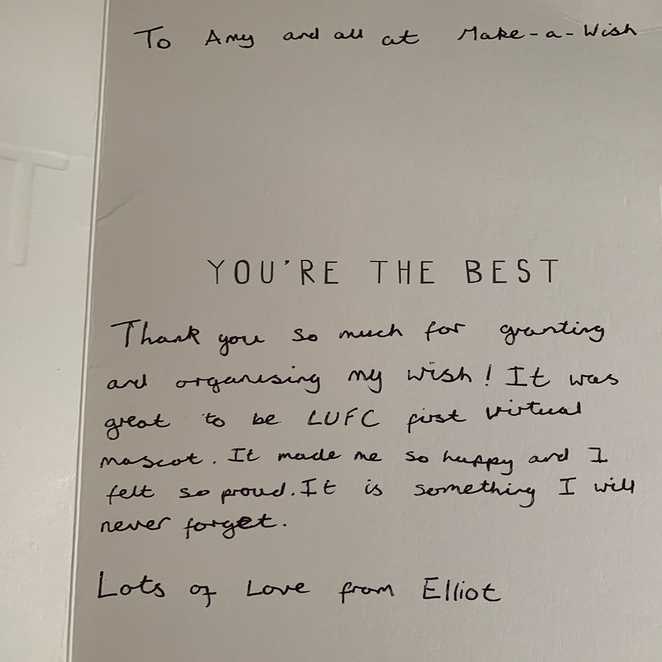 To Amy and all at Make-a-Wish
T
YOU'RE THE BEST
Thank you so much for granting
and organising my wish! It was
great to be LUFC first virtual
mascot. It made me so happy and I
felt so proud. It is something I will
never forget.
Lots of Love from Elliot